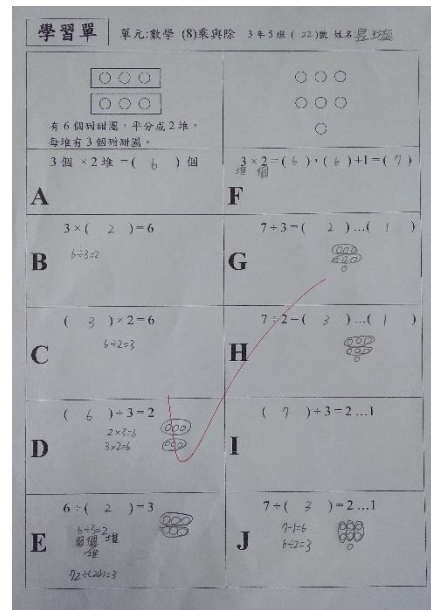 學習單 單元:數學 (8)乘與除 3年5班 ( 22 )號 姓名
有6個甜甜圈,平分成2堆,
每堆有3個甜甜圈。
3個 ×2堆 =( 6 )個
A
3×2=( 6 ),( 6 )+1=( 7 )
堆 個
F
3×( 2 )=6
6÷3=2
B
7÷3=( 2 )…( 1 )
G
( 3 )×2=6
6÷2=3
C
7÷2=( 3 )…( 1 )
H
( 6 )÷3=2
2×3=6
3×2=6
D
( 7 )÷3=2…1
I
6÷( 2 )=3
6÷3=2
堆
E
72÷(24)=3
7÷( 3 )=2…1
7-1=6
6÷2=3
J